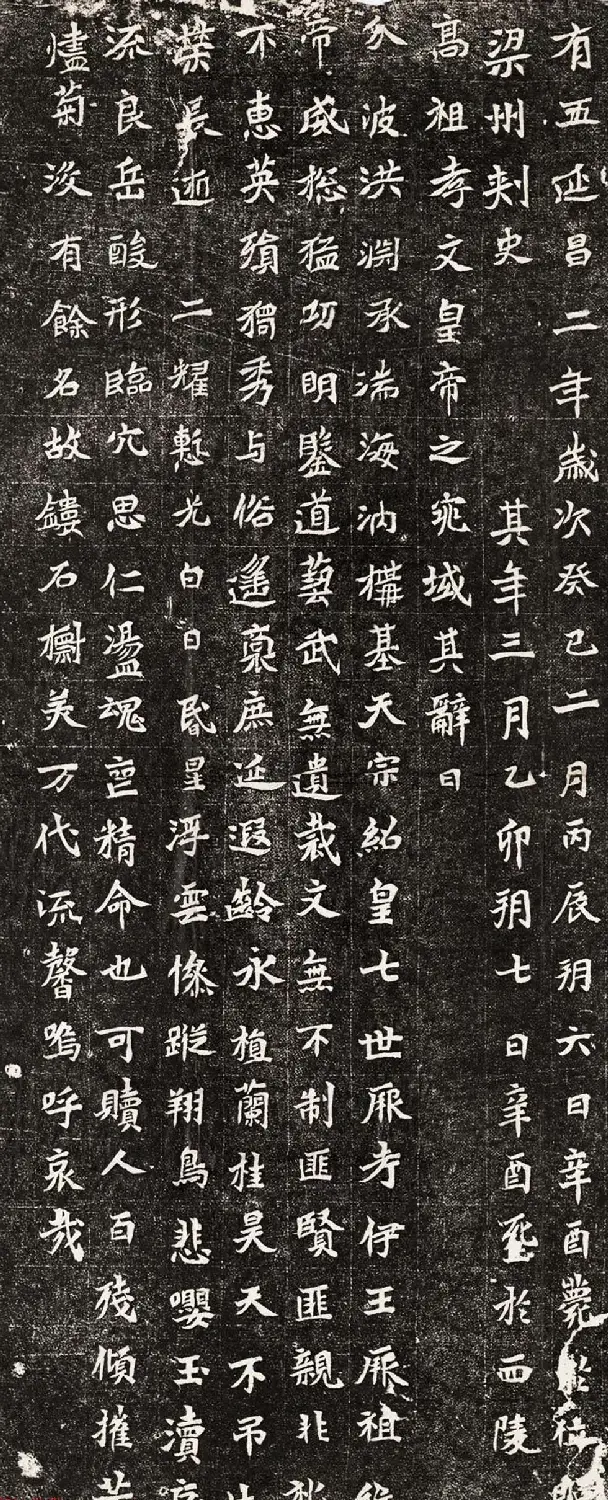 有五延昌二年歲次癸巳二月丙辰朔六日辛酉薨
梁州刾史 其年三月乙卯朔七日辛酉窆於西陵
高祖孝文皇帝之兆域其辭曰
分波洪淵承湍海汭構基天宗紹皇七世厥考伊王厥祖
帝威揔猛功明鑒道藝武無遺裁文無不制匪賢匪親非
不惠英殞獨秀与俗遙稟庶延遐齡永植蘭桂昊天不弔
葉長逝 二耀暫光白日昏星浮雲慘蹤翔鳥悲嚶玉瀆
流良岳酸形臨穴思仁盪魂喪精命也可贖人百殘傾摧
燼菊沒有餘名故鏤石㯢美万代流馨嗚呼哀哉